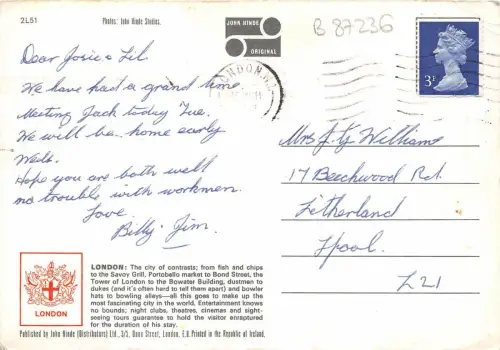 2L51
Photos: John Hinde Studios.
JOHN HINDE
ORIGINAL
B 87236
3P
LONDON
Dear Josie & Lil
We have had a grand time.
Meeting Jack today Tue.
We will be home early
Weds.
Hope you are both well
no trouble with workmen.
Love
Billy Jim.
Mrs J. G. Williams
17 Beechwood Rd.
Litherland
Lpool.
L21
LONDON
LONDON: The city of contrasts; from fish and chips
to the Savoy Grill, Portobello market to Bond Street, the
Tower of London to the Bowater Building, dustmen to
dukes (and it's often hard to tell them apart) and bowler
hats to bowling alleys—all this goes to make up the
most fascinating city in the world. Entertainment knows
no bounds; night clubs, theatres, cinemas and sight-
seeing tours guarantee to hold the visitor enraptured
for the duration of his stay.
Published by John Hinde (Distributors) Ltd., 3/5, Dean Street, London. E.U. Printed in the Republic of Ireland.